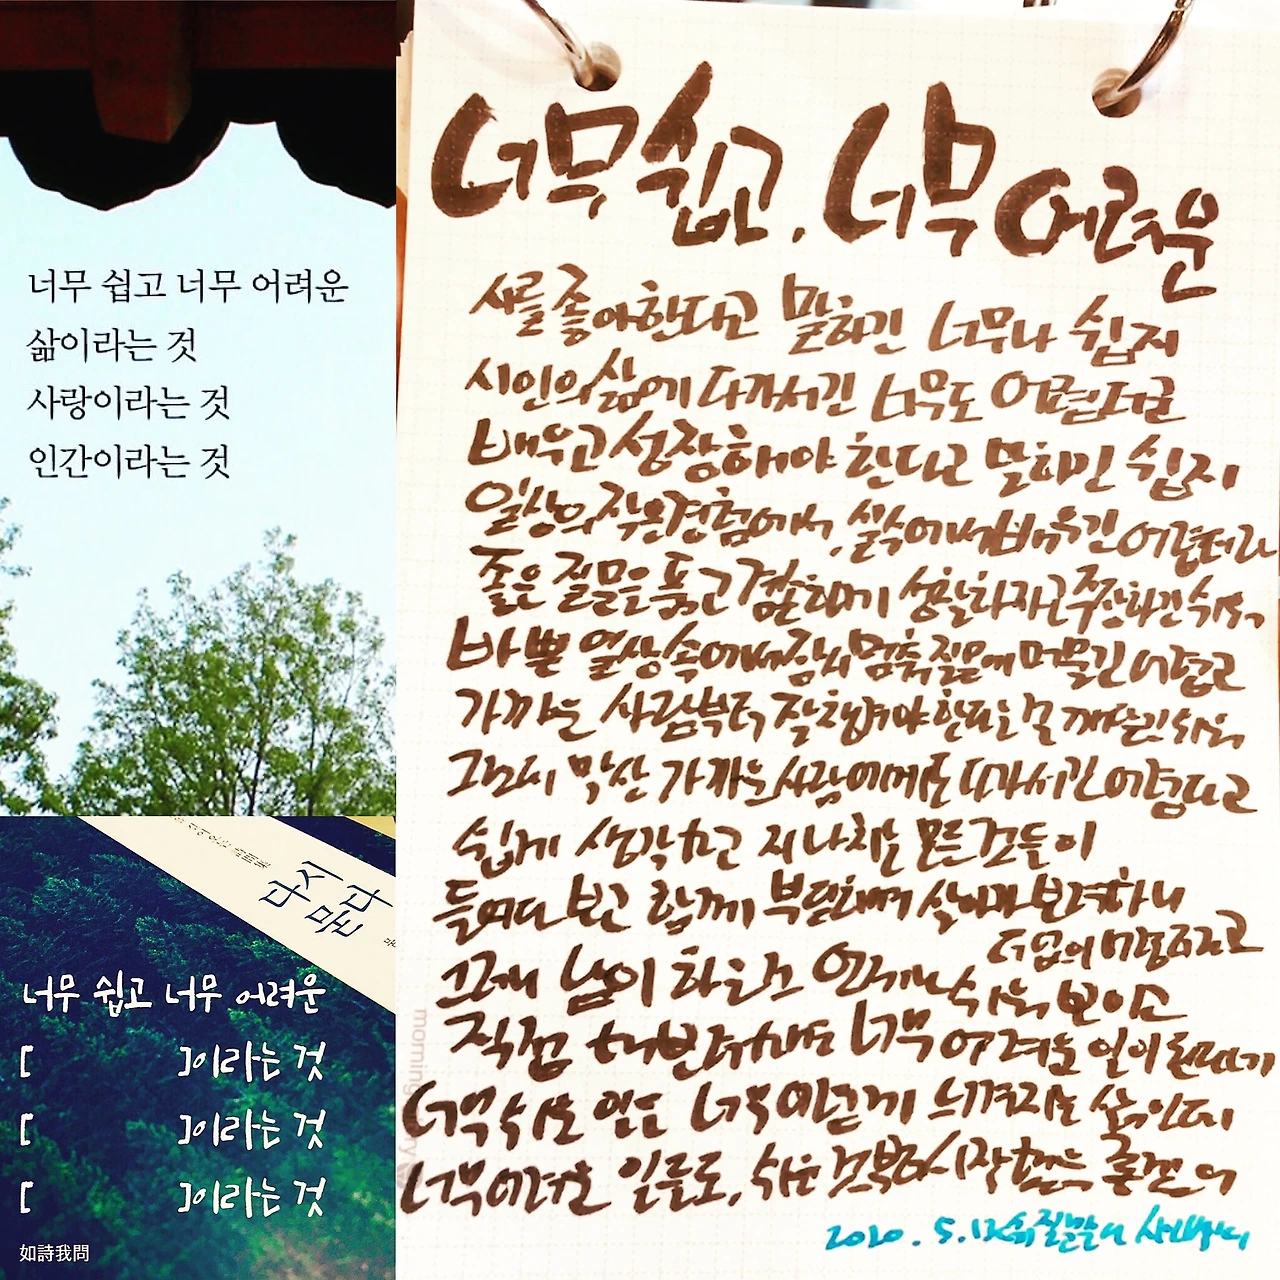 너무 쉽고 너무 어려운
삶이라는 것
사랑이라는 것
인간이라는 것
다시
묻다
너무 쉽고 너무 어려운
[ ]이라는 것
[ ]이라는 것
[ ]이라는 것
如詩我問
너무 쉽고, 너무 어려운
시를 좋아한다고 말하긴 너무나 쉽지
시인의 삶에 다가서긴 너무도 어렵더군
배우고 성장해야 한다고 말하긴 쉽지
일상의 작은 경험에서, 실수에서 배우긴 어렵더라
좋은 질문을 품고 겸손하게 성찰하자고 주장하긴 쉬워
바쁜 일상 속에서 잠시 멈춰 질문에 머물긴 어렵고
가까운 사람부터 잘 챙겨야 한다는 걸 깨닫긴 쉬워
그런데 막상 가까운 사람에게도 다가서긴 어렵다고
쉽게 생각하고 지나친 모든 것들이
들여다 보고 함께 부딪히며 살아가 보려하니
그게 남이 하는 걸 언제나 쉬워 보이고
직접 해보려하면 너무 어려운 일이 된다
너무 쉬운 일도 너무 어렵게 느껴지는 삶인데
너무 어려운 일들도, 쉬운 것부터 시작하는
2020. 5. 12
morning